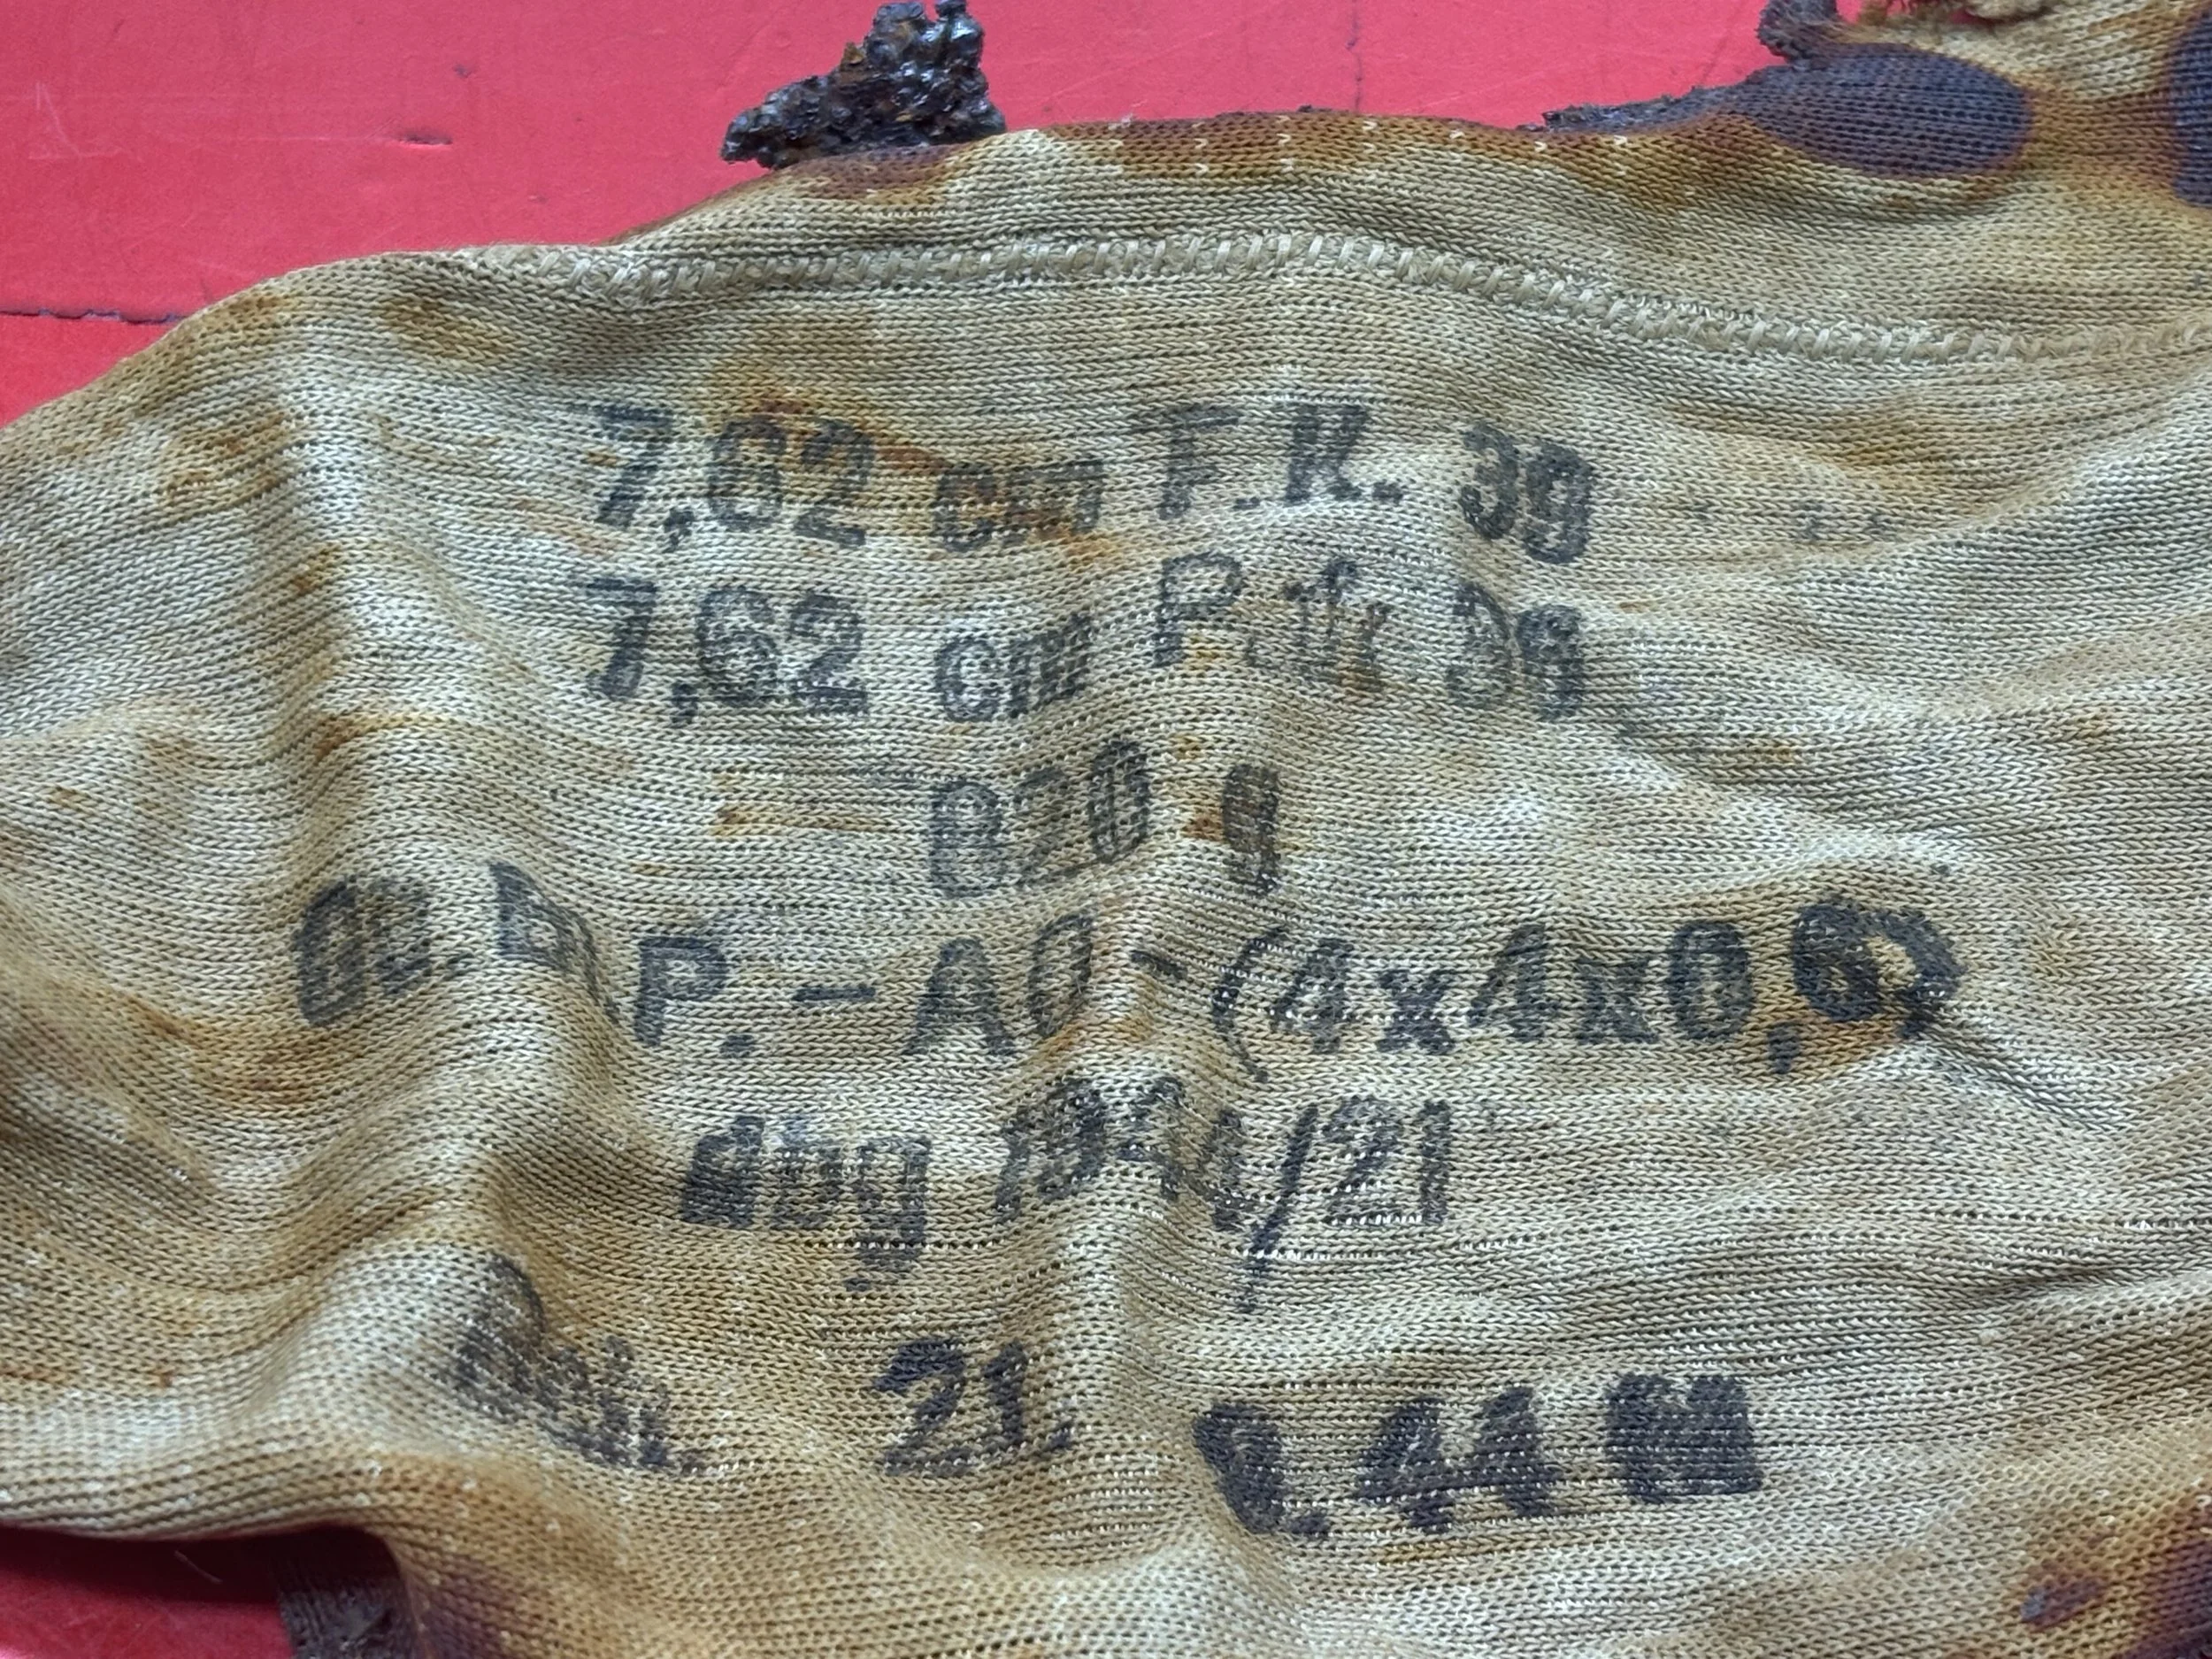 7,62 cm F.K. 39
7,62 cm P. 36
820 g
P.-A0-(4x4x0,6)
dbg 1944/21
21. 9. 44